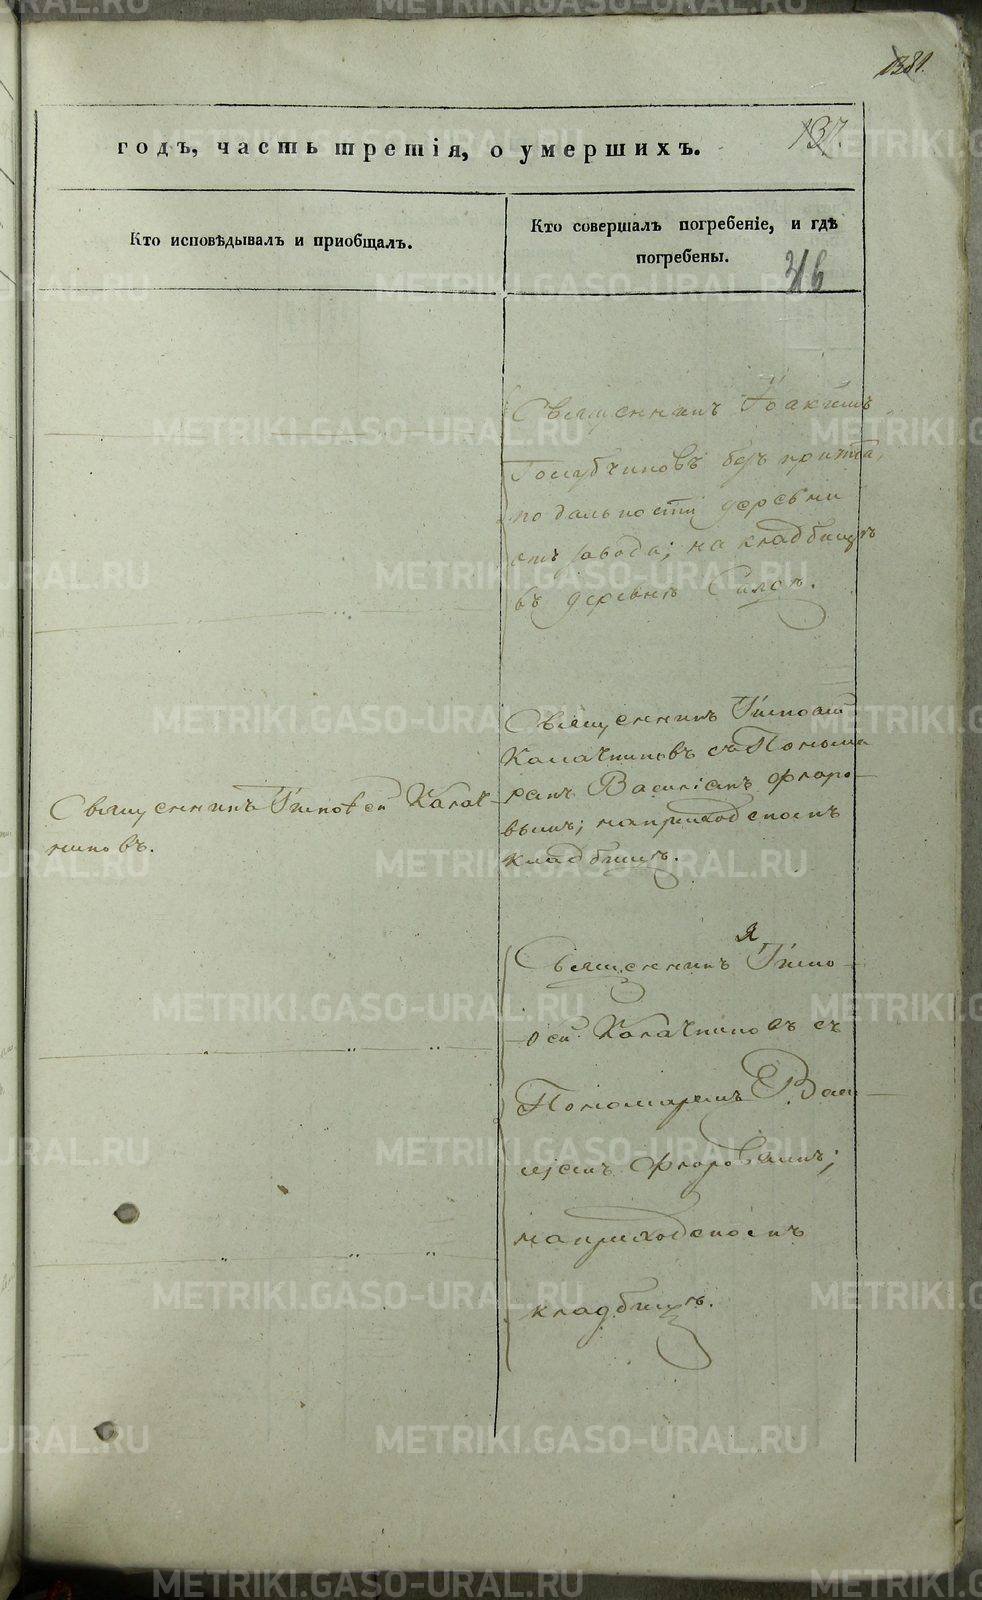 137.
годъ, часть третія, о умершихъ.
Кто исповѣдывалъ и приобщалъ.
Кто совершалъ погребеніе, и гдѣ
погребены.
316
Священникъ Іоакимъ
Голубчиковъ безъ причта,
по дальности деревни
отъ завода; на кладбищѣ
въ деревнѣ
Священникъ Тимоѳей
Калачниковъ съ Понома
ремъ Василіемъ Флоро
вымъ; на приходскомъ
кладбищѣ.
Священникъ Тимоѳей Калач
никовъ.
Священникъ Тимо
ѳей Калачниковъ съ
Пономаремъ Васи
ліемъ Флоровымъ;
на приходскомъ
кладбищѣ.
METRIKI.GASO-URAL.RU